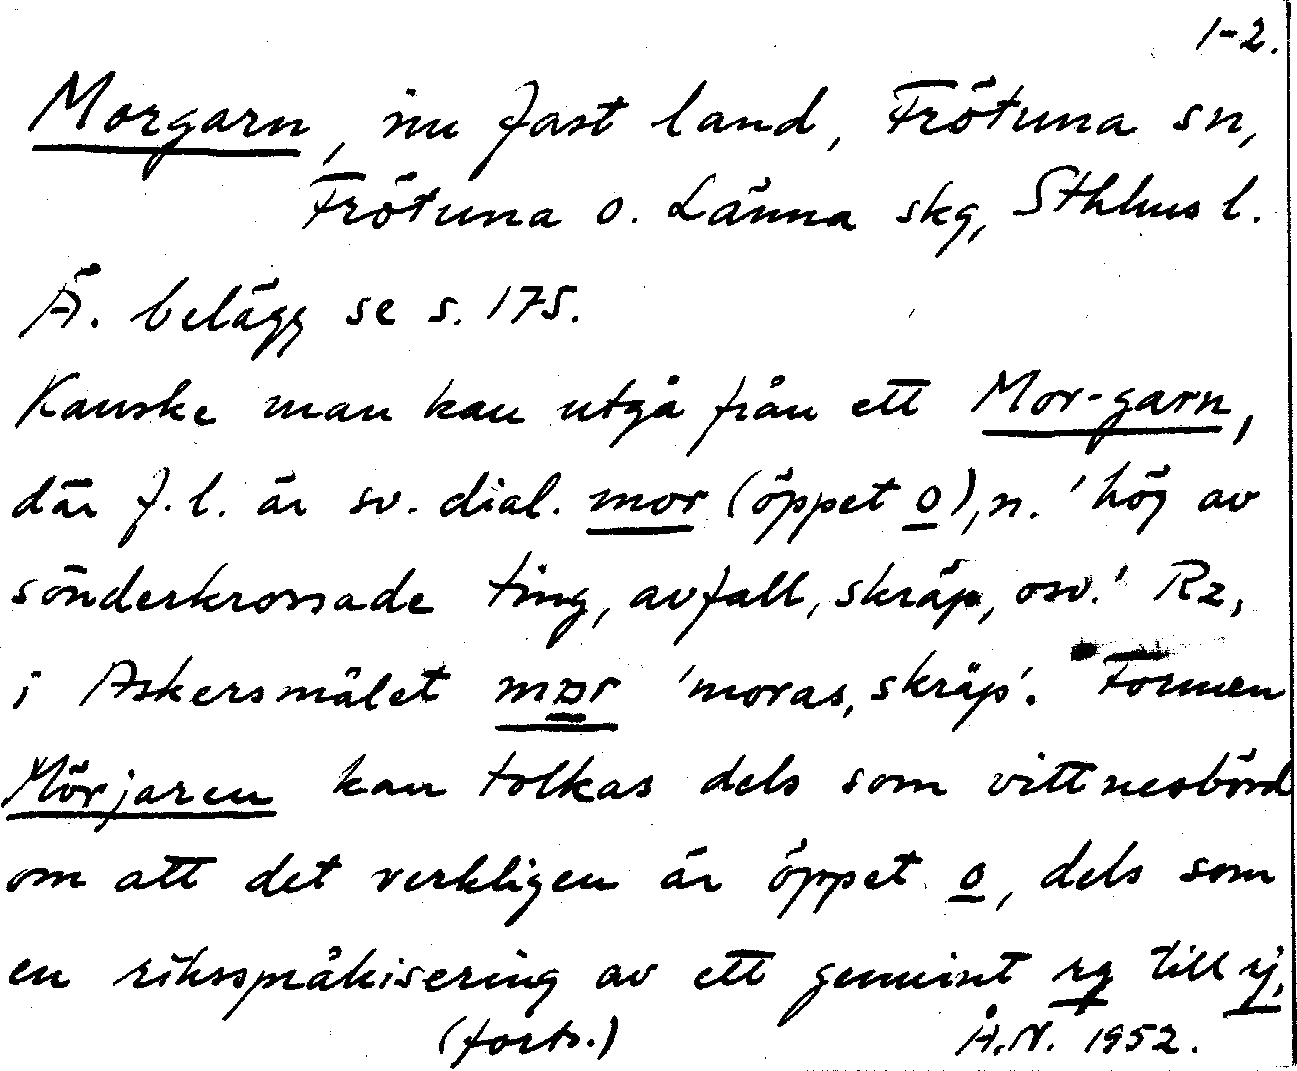 1-2.
Morgarn, nu fast land, Frötuna sn,
Frötuna o. Länna skg, Sthlms l.
Ä. belägg se s. 175.
Kanske man kan utgå från ett Mor-garn,
där f.l. är sv. dial. mor (öppet o), n. 'hög av
sönderkrossade ting, avfall, skräp, osv.' Rz,
i Askersmålet mɒr 'moras, skräp'. Formen
Mörjaren kan tolkas dels som vittnesbörd
om att det verkligen är öppet o, dels som
en riksspråkisering av ett genuint rg till rj,
(forts.) Å.N. 1952.